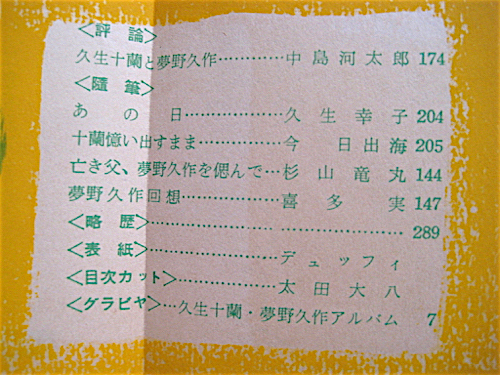 〈評論〉
久生十蘭と夢野久作…………中島河太郎 174
〈随筆〉
あの日……………久生幸子 204
十蘭憶い出すまま……………今日出海 205
亡き父、夢野久作を偲んで…杉山竜丸 144
夢野久作回想……………喜多実 147
〈略歴〉…………………… 289
〈表紙〉……………デュッフィ
〈目次カット〉……………太田大八
〈グラビヤ〉…久生十蘭・夢野久作アルバム 7